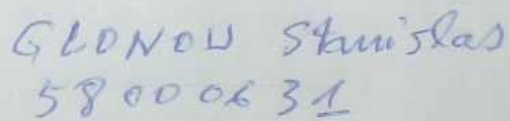 GLONOU Stanislas
58 00 06 31